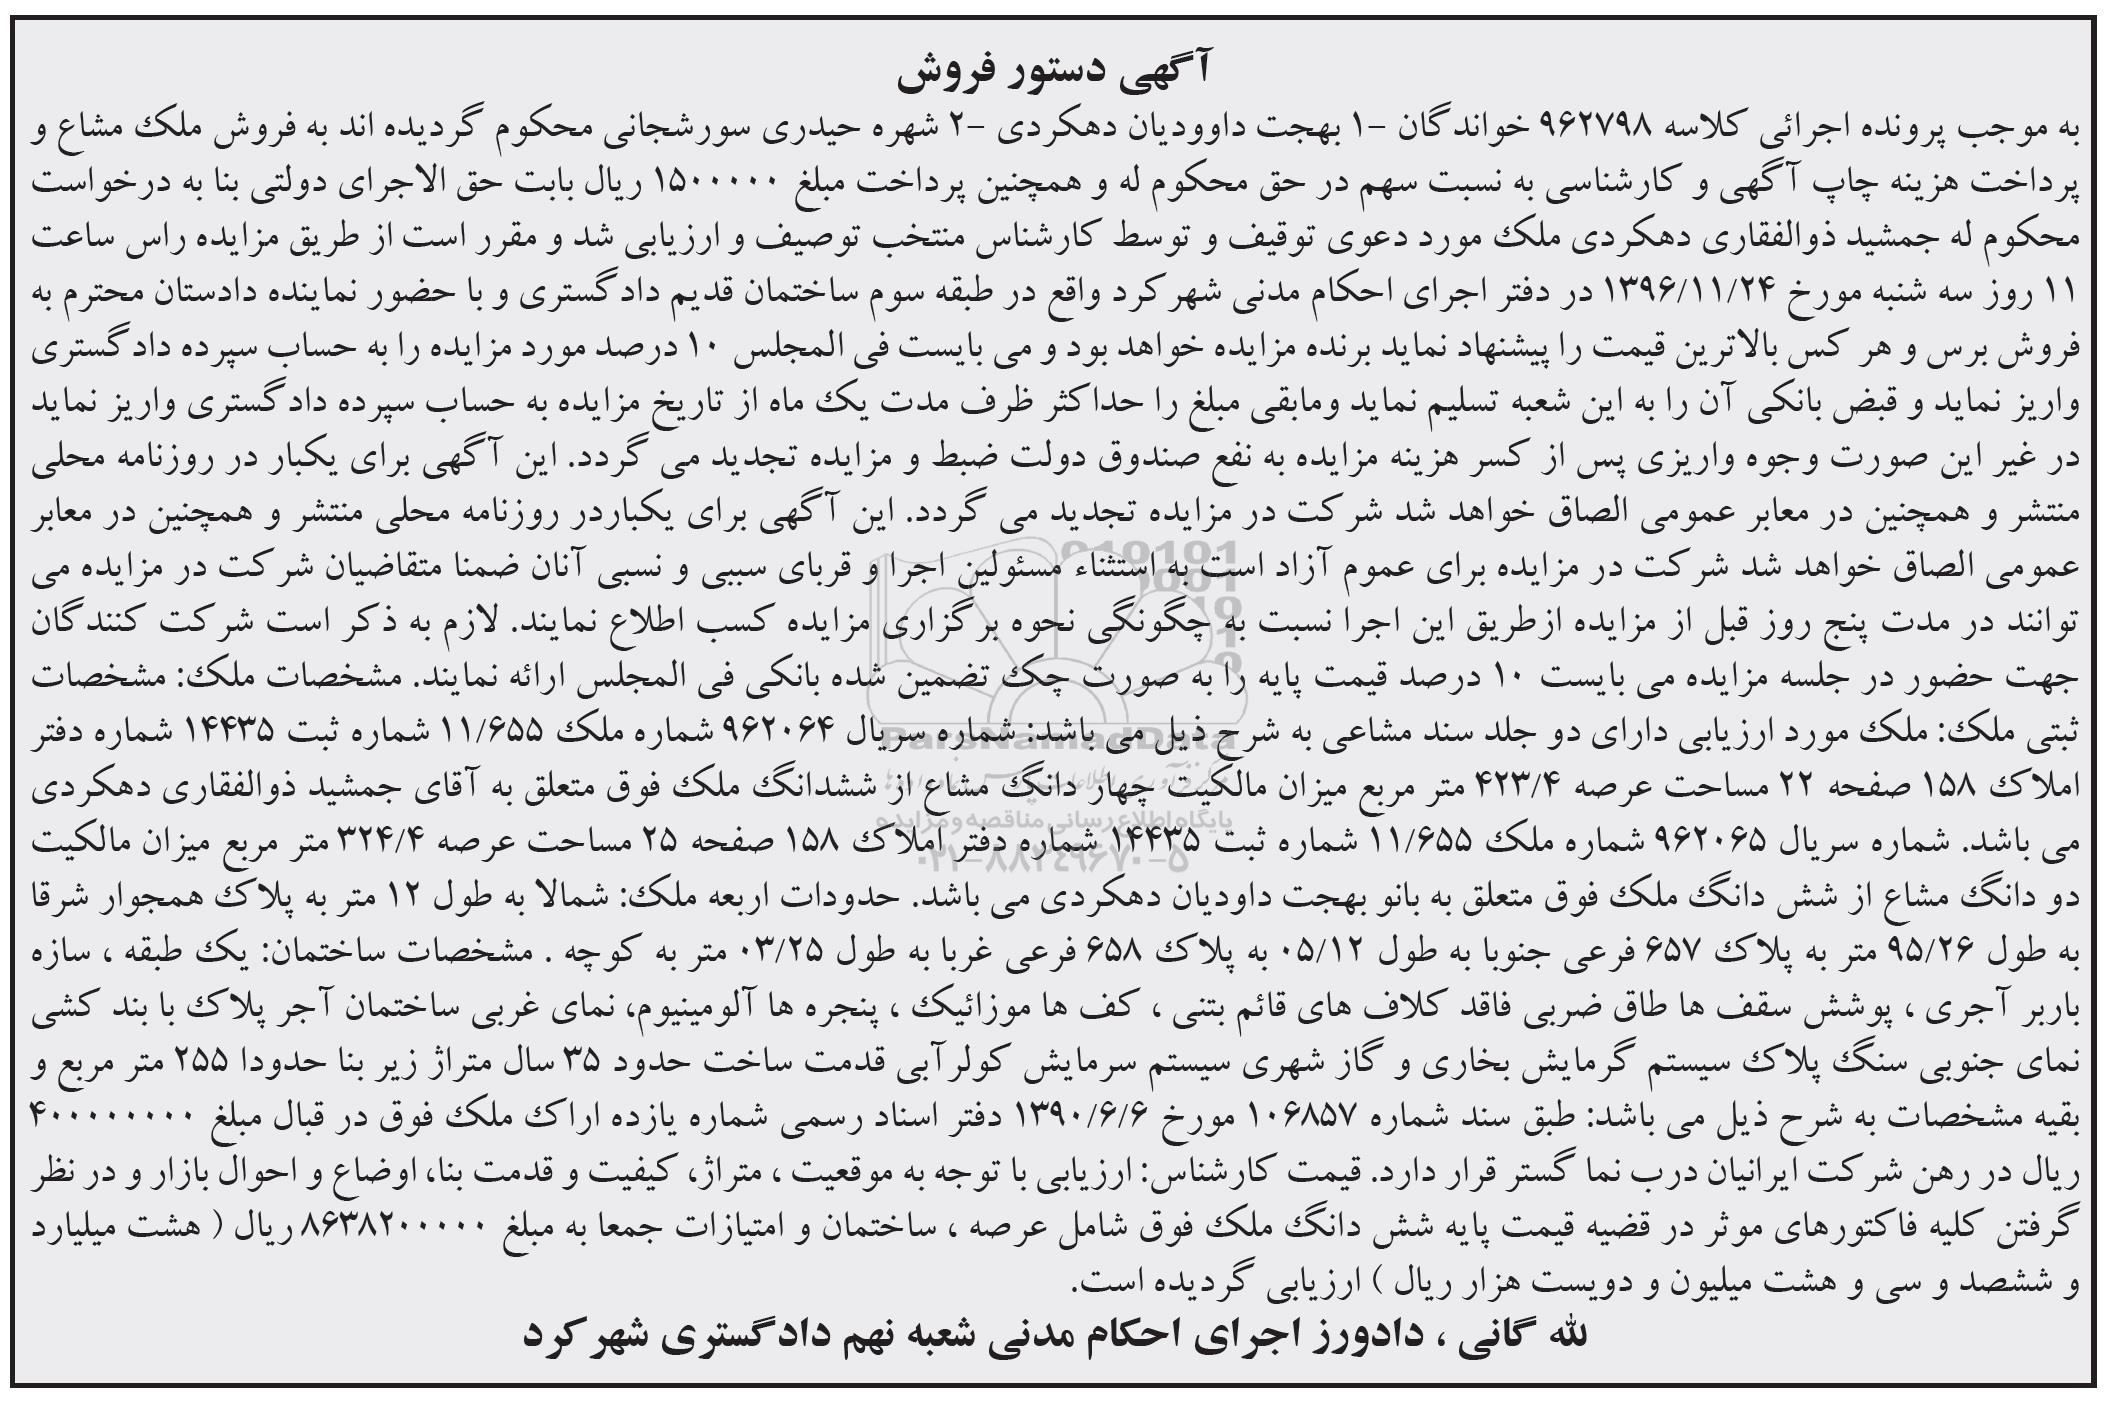 آگهی دستور فروش
به موجب پرونده اجرائی کلاسه ۹۶۲۷۹۸ خواندگان -۱ بهجت داوودیان دهکردی -۲ شهره حیدری سورشجانی محکوم گردیده اند به فروش ملک مشاع و
پرداخت هزینه چاپ آگهی و کارشناسی به نسبت سهم در حق محکوم له و همچنین پرداخت مبلغ ۱۵۰۰۰۰۰ ریال بابت حق الاجرای دولتی بنا به درخواست
محکوم له جمشید ذوالفقاری دهکردی ملک مورد دعوی توقیف و توسط کارشناس منتخب توصیف و ارزیابی شد و مقرر است از طریق مزایده راس ساعت
۱۱ روز سه شنبه مورخ ۱۳۹۶/۱۱/۲۴ در دفتر اجرای احکام مدنی شهرکرد واقع در طبقه سوم ساختمان قدیم دادگستری و با حضور نماینده دادستان محترم به
فروش برس و هر کس بالاترین قیمت را پیشنهاد نماید برنده مزایده خواهد بود و می بایست فی المجلس ۱۰ درصد مورد مزایده را به حساب سپرده دادگستری
واریز نماید و قبض بانکی آن را به این شعبه تسلیم نماید ومابقی مبلغ را حداکثر ظرف مدت یک ماه از تاریخ مزایده به حساب سپرده دادگستری واریز نماید
در غیر این صورت وجوه واریزی پس از کسر هزینه مزایده به نفع صندوق دولت ضبط و مزایده تجدید می گردد. این آگهی برای یکبار در روزنامه محلی
منتشر و همچنین در معابر عمومی الصاق خواهد شد شرکت در مزایده تجدید می گردد. این آگهی برای یکباردر روزنامه محلی منتشر و همچنین در معابر
عمومی الصاق خواهد شد شرکت در مزایده برای عموم آزاد است به استثناء مسئولین اجرا و قربای سببی و نسبی آنان ضمنا متقاضیان شرکت در مزایده می
توانند در مدت پنج روز قبل از مزایده ازطریق این اجرا نسبت به چگونگی نحوه برگزاری مزایده کسب اطلاع نمایند. لازم به ذکر است شرکت کنندگان
جهت حضور در جلسه مزایده می بایست ۱۰ درصد قیمت پایه را به صورت چک تضمین شده بانکی فی المجلس ارائه نمایند. مشخصات ملک: مشخصات
ثبتی ملک: ملک مورد ارزیابی دارای دو جلد سند مشاعی به شرح ذیل می باشد: شماره سریال ۹۶۲۰۶۴ شماره ملک ۱۱/۶۵۵ شماره ثبت ۱۴۴۳۵ شماره دفتر
املاک ۱۵۸ صفحه ۲۲ مساحت عرصه ۴۲۳/۴ متر مربع میزان مالکیت چهار دانگ مشاع از ششدانگ ملک فوق متعلق به آقای جمشید ذوالفقاری دهکردی
می باشد. شماره سریال ۹۶۲۰۶۵ شماره ملک ۱۱/۶۵۵ شماره ثبت ۱۴۴۳۵ شماره دفتر املاک ۱۵۸ صفحه ۲۵ مساحت عرصه ۳۲۴/۴ متر مربع میزان مالکیت
دو دانگ مشاع از شش دانگ ملک فوق متعلق به بانو بهجت داودیان دهکردی می باشد. حدودات اربعه ملک: شمالا به طول ۱۲ متر به پلاک همجوار شرقا
به طول ۹۵/۲۶ متر به پلاک ۶۵۷ فرعی جنوبا به طول ۰۵/۱۲ به پلاک ۶۵۸ فرعی غربا به طول ۰۳/۲۵ متر به کوچه . مشخصات ساختمان: یک طبقه ، سازه
باربر آجری ، پوشش سقف ها طاق ضربی فاقد کلاف های قائم بتنی ، کف ها موزائیک ، پنجره ها آلومینیوم، نمای غربی ساختمان آجر پلاک با بند کشی
نمای جنوبی سنگ پلاک سیستم گرمایش بخاری و گاز شهری سیستم سرمایش کولرآبی قدمت ساخت حدود ۳۵ سال متراژ زیر بنا حدودا ۲۵۵ متر مربع و
بقیه مشخصات به شرح ذیل می باشد: طبق سند شماره ۱۰۶۸۵۷ مورخ ۱۳۹۰/۶/۶ دفتر اسناد رسمی شماره یازده اراک ملک فوق در قبال مبلغ ۴۰۰۰۰۰۰۰۰
ریال در رهن شرکت ایرانیان درب نما گستر قرار دارد. قیمت کارشناس: ارزیابی با توجه به موقعیت ، متراژ، کیفیت و قدمت بنا، اوضاع و احوال بازار و در نظر
گرفتن کلیه فاکتورهای موثر در قضیه قیمت پایه شش دانگ ملک فوق شامل عرصه ، ساختمان و امتیازات جمعا به مبلغ ۸۶۳۸۲۰۰۰۰۰ ریال ( هشت میلیارد
و ششصد و سی و هشت میلیون و دویست هزار ریال ) ارزیابی گردیده است.
لله گانی ، دادورز اجرای احکام مدنی شعبه نهم دادگستری شهرکرد
ParsNamadData
پایگاه اطلاع رسانی مناقصه و مزایده
۰۲۱-۸۸۳۴۹۶۷۰-۵